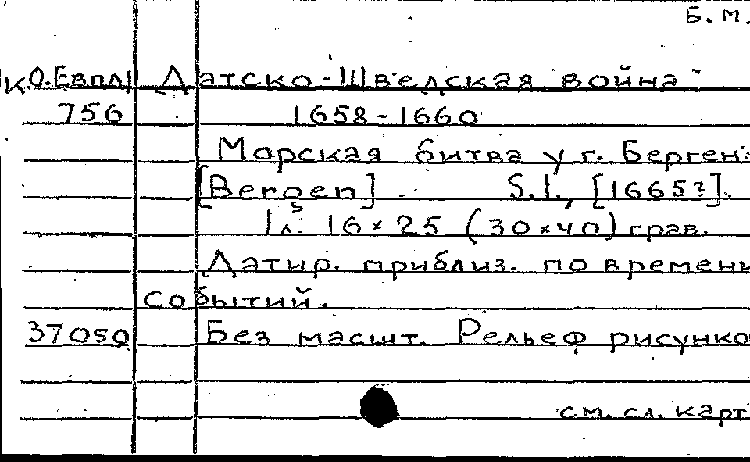 Б. М.
К О.Евпл Датско-Шведская война
756 1658-1660
Морская битва у г. Берген
[Bergen]. S.l., [1665?].
1 л. 16×25 (30×40) грав.
Датир. приблиз. по времени
событий.
37050 Без масшт. Рельеф рисунко
см. сл. карт